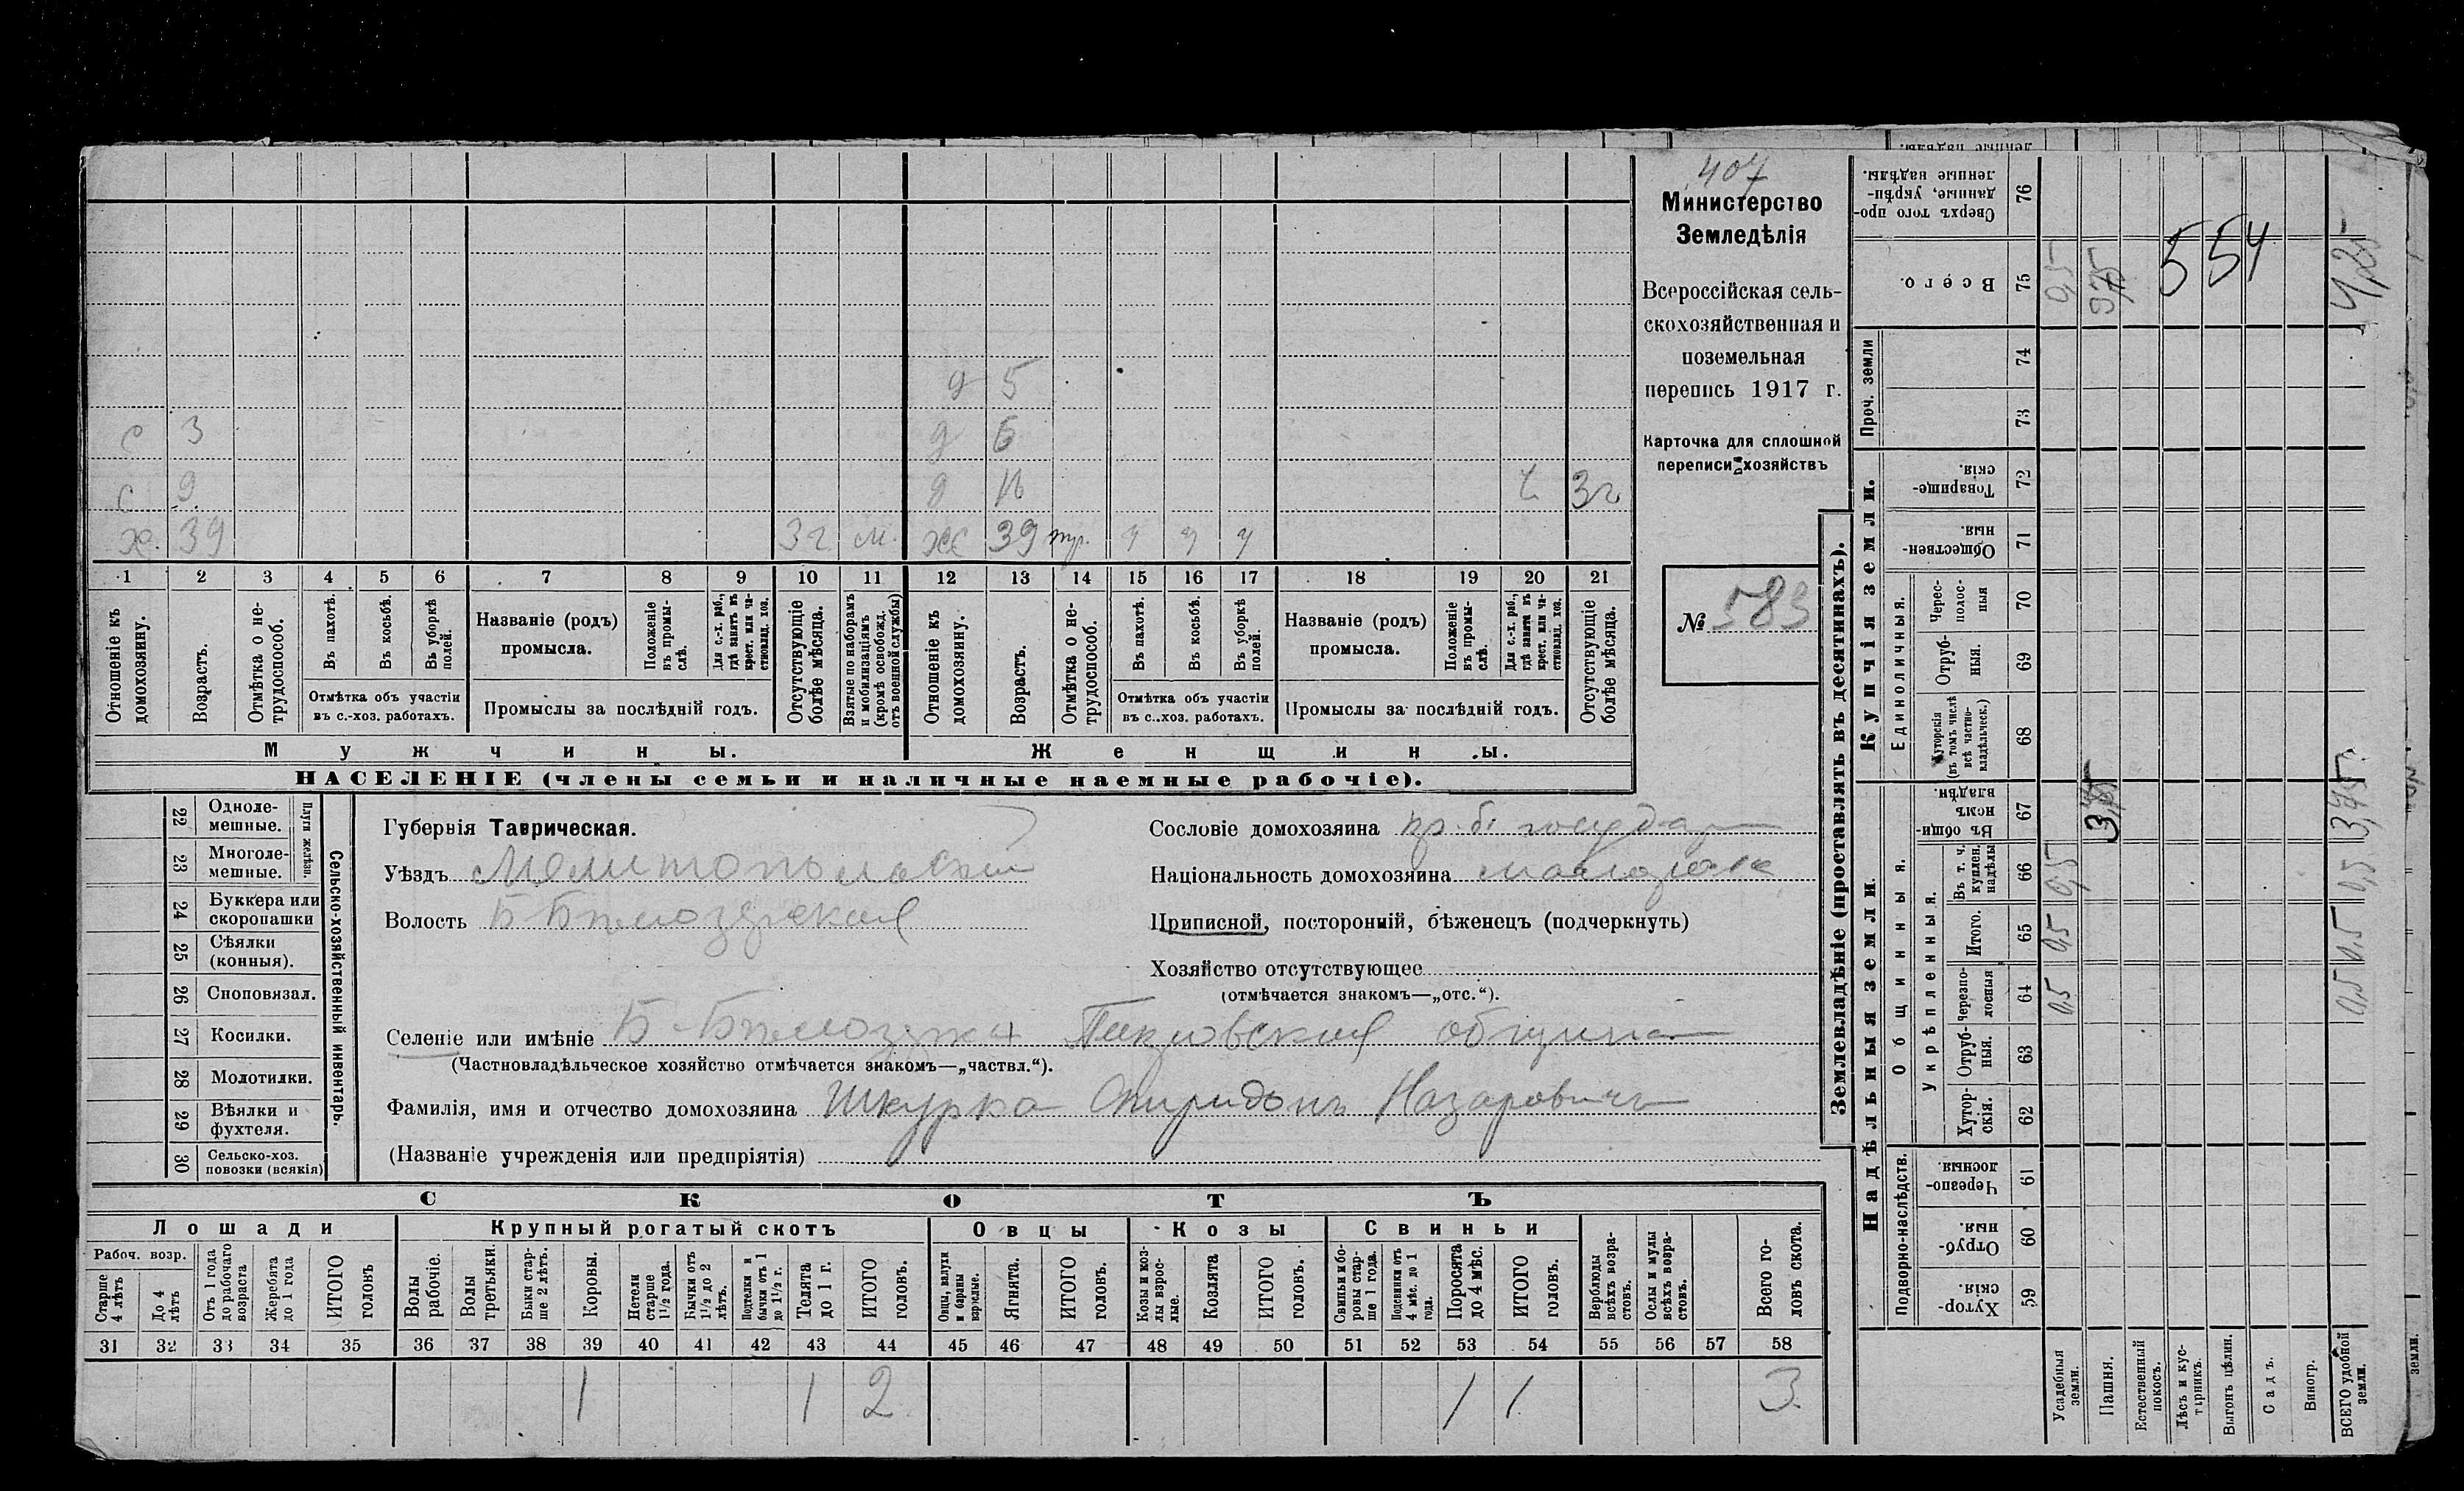 407
Министерство
Земледѣлія
Всероссійская сель-
скохозяйственная и
поземельная
перепись 1917 г.
Карточка для сплошной
переписи хозяйствъ
№ 583
д 5
с 3 д 6
с 9 д 3г
х. 39 3г м. ж 39
1 2 3 4 5 6 7 8 9 10 11 12 13 14 15 16 17 18 19 20 21
Отношеніе къ домохозяину.
Возрастъ.
Отмѣтка о не-трудоспособ.
Въ пахотѣ.
Въ косьбѣ.
Въ уборкѣ полей.
Отмѣтка объ участіи
въ с.-хоз. работахъ.
Названіе (родъ)
промысла.
Положеніе въ промы-слѣ.
Для с.-х. раб., гдѣ занятъ въ крест. или ча-стновлад. хоз.
Промыслы за послѣдній годъ.
Отсутствующіе болѣе мѣсяца.
Взятые по наборамъ и мобилизаціямъ (кромѣ освобожд. отъ военной службы)
Отношеніе къ домохозяину.
Возрастъ.
Отмѣтка о не-трудоспособ.
Въ пахотѣ.
Въ косьбѣ.
Въ уборкѣ полей.
Отмѣтка объ участіи
въ с..хоз. работахъ.
Названіе (родъ)
промысла.
Положеніе въ промы-слѣ.
Для с.-х. раб., гдѣ заняты въ крест. или ча-стновлад. хоз.
Промыслы за послѣдній годъ.
Отсутствующіе болѣе мѣсяца.
Мужчины.
Женщины.
НАСЕЛЕНІЕ (члены семьи и наличные наемные рабочіе).
Сельско-хозяйственный инвентарь.
Плуги желѣзн.
22 Одноле-мешные.
23 Многоле-мешные.
24 Буккера или скоропашки
25 Сѣялки (конныя).
26 Сноповязал.
27 Косилки.
28 Молотилки.
29 Вѣялки и фухтеля.
30 Сельско-хоз. повозки (всякія)
Губернія Таврическая.
Уѣздъ Мелитопольскій
Волость Б-Бѣлозерская
Сословіе домохозяина кр. б. государ
Національность домохозяина
Приписной, посторонній, бѣженецъ (подчеркнуть)
Хозяйство отсутствующее
(отмѣчается знакомъ—„отс.“).
Селеніе или имѣніе Б-Бѣлозерка община
(Частновладѣльческое хозяйство отмѣчается знакомъ—„частвл.“).
Фамилія, имя и отчество домохозяина Шкурка Спиридонъ Назаровичъ
(Названіе учрежденія или предпріятія)
СКОТЪ
Лошади
Крупный рогатый скотъ
Овцы
Козы
Свиньи
Рабоч. возр.
Старше 4 лѣтъ
До 4 лѣтъ
Отъ 1 года до рабочаго возраста
Жеребята до 1 года
ИТОГО головъ
Волы рабочіе.
Волы третьяки.
Быки стар-ше 2 лѣтъ.
Коровы.
Нетели старше 1 1/2 года.
Бычки отъ 1 1/2 до 2 лѣтъ.
Подтелки и бычки отъ 1 до 1 1/2 г.
Телята до 1 г.
ИТОГО головъ.
Овцы, валухи и бараны взрослые.
Ягнята.
ИТОГО головъ.
Козы и коз-лы взрос-лые.
Козлята
ИТОГО головъ.
Свиньи и бо-ровы стар-ше 1 года.
Подсвинки отъ 4 мѣс. до 1 года.
Поросята до 4 мѣс.
ИТОГО головъ.
Верблюды всѣхъ возра-стовъ.
Ослы и мулы всѣхъ возра-стовъ.
Всего го-ловъ скота.
31 32 33 34 35 36 37 38 39 40 41 42 43 44 45 46 47 48 49 50 51 52 53 54 55 56 57 58
1 1 2 1 1 3
Землевладѣніе (проставлять въ десятинахъ).
Надѣльныя земли
Купчія земли.
Проч. земли
Подворно-наслѣдств.
Общинныя.
Укрѣпленныя.
Единоличныя.
Хутор-скія. 59
Отруб-ныя. 60
Черезпо-лосныя. 61
Хутор-скія. 62
Отруб-ныя. 63
Черезпо-лосныя 64 0,5 0,5
Итого. 65 0,5 0,5
Въ т. ч. куплен. надѣлы 66
Въ общин-номъ владѣн. 67 3,75 3,75
Хуторскія (въ томъ числѣ всѣ частно-владѣльческ.) 68
Отруб-ныя. 69
Черес-полос-ныя 70
Обществен-ныя 71
Товарище-скія. 72
73
74
Всего. 75 4,25
Сверхъ того про-данные, укрѣп-ленные надѣлы. 76
554
Усадебныя земли.
Пашня.
Естественный покосъ.
Лѣсъ и кус-тарникъ.
Выгонъ цѣлин.
Садъ.
Виногр.
ВСЕГО удобной земли.
земли.